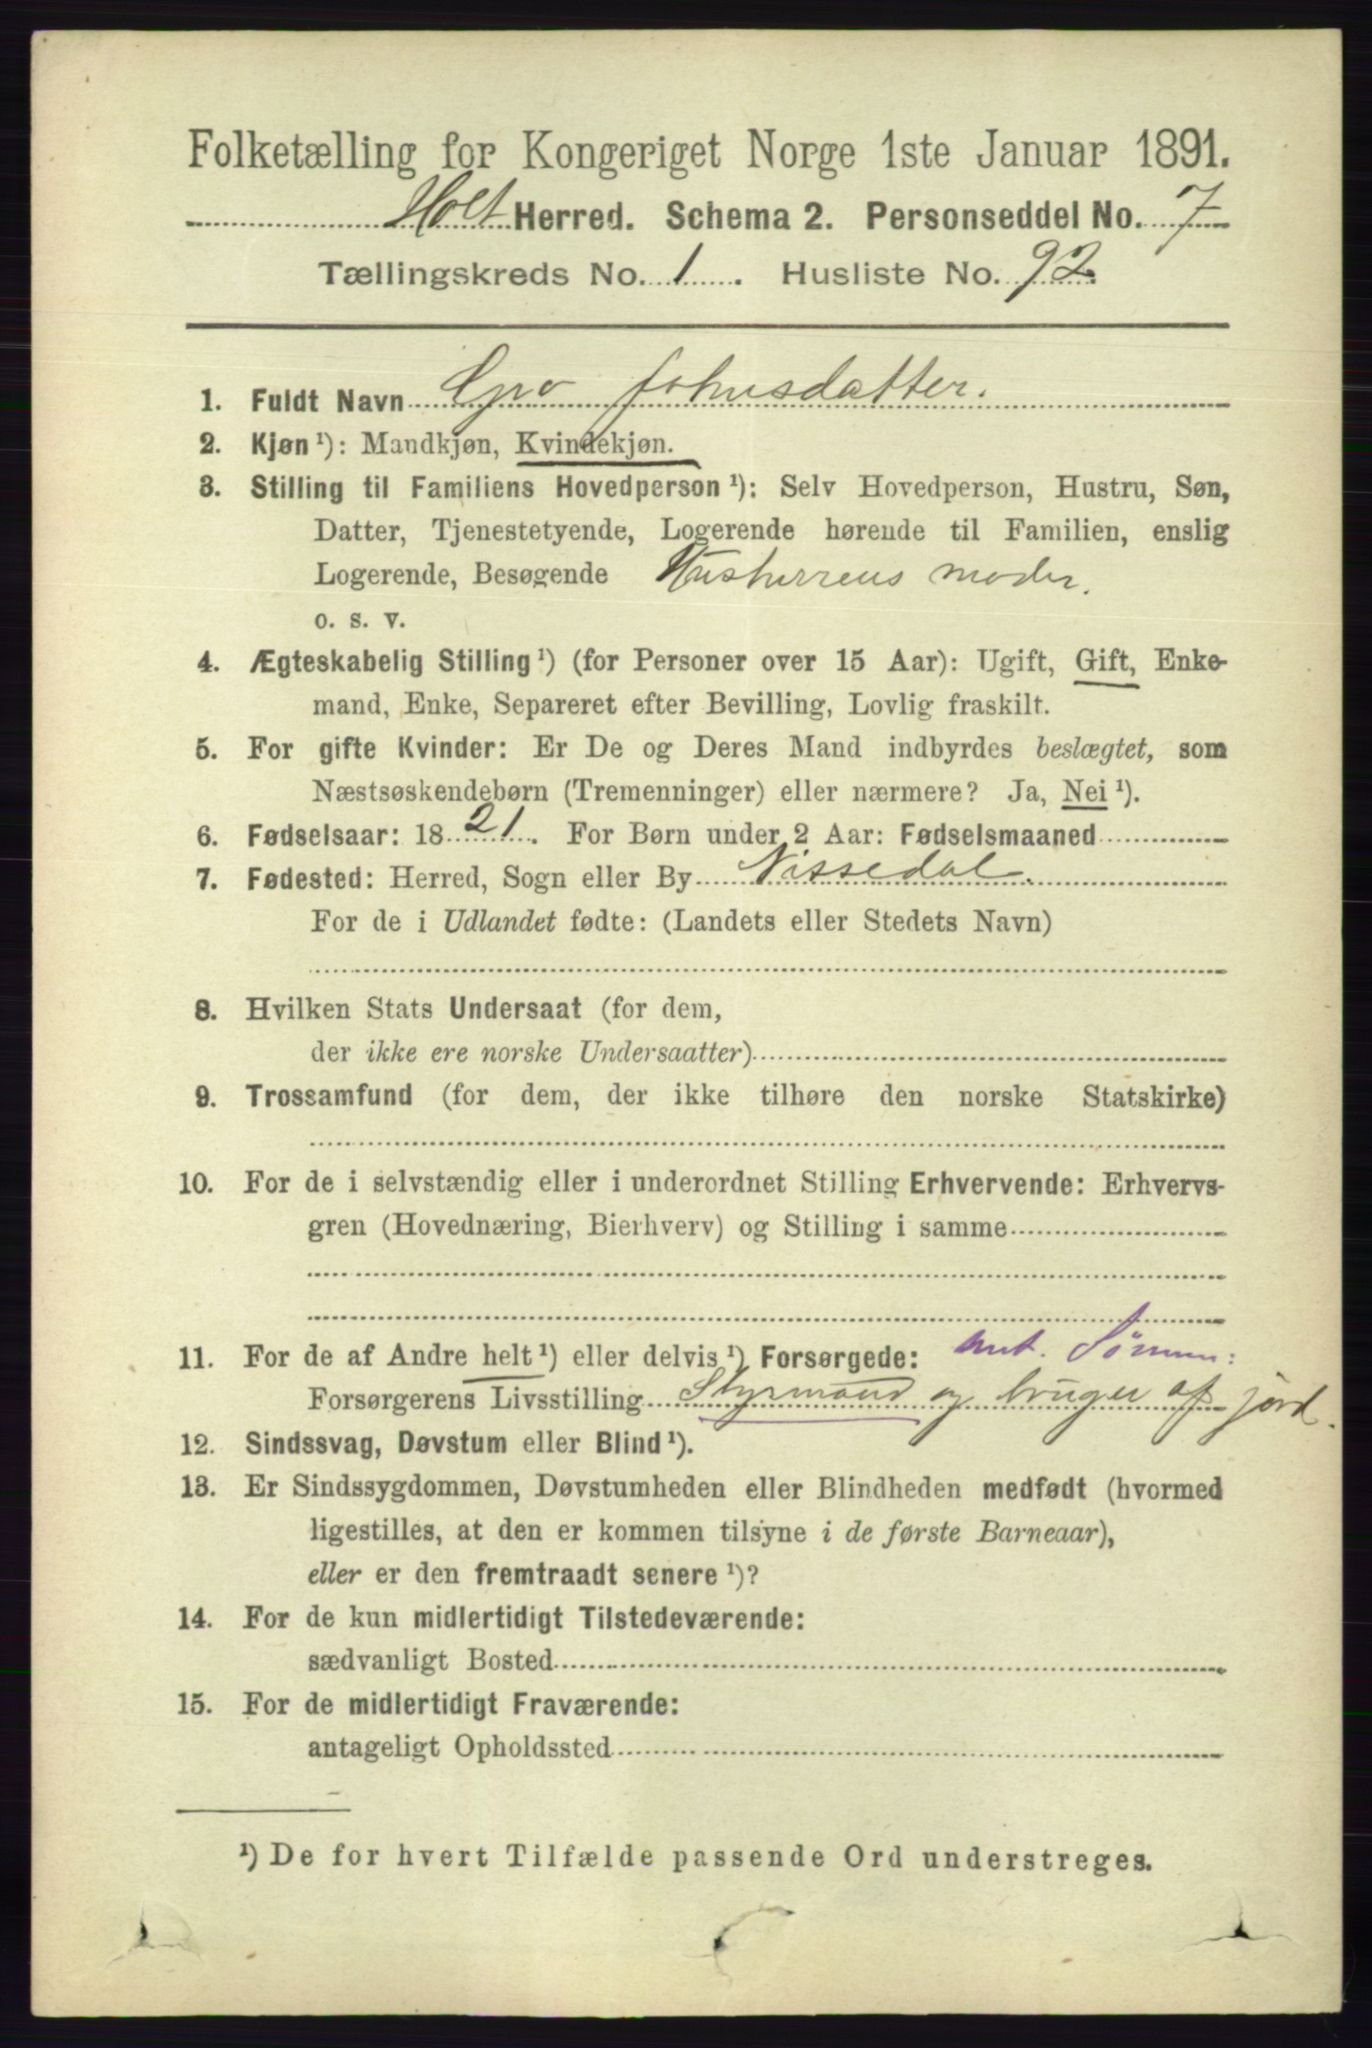 Folketælling for Kongeriget Norge 1ste Januar 1891.
Holt Herred. Schema 2. Personseddel No. 7
Tællingskreds No. 1. Husliste No. 92.
1. Fuldt Navn Gro Johnsdatter.
2. Kjøn ¹): Mandkjøn, Kvindekjøn.
3. Stilling til Familiens Hovedperson ¹): Selv Hovedperson, Hustru, Søn,
Datter, Tjenestetyende, Logerende hørende til Familien, enslig
Logerende, Besøgende Husherrens moder.
o. s. v.
4. Ægteskabelig Stilling ¹) (for Personer over 15 Aar): Ugift, Gift, Enke-
mand, Enke, Separeret efter Bevilling, Lovlig fraskilt.
5. For gifte Kvinder: Er De og Deres Mand indbyrdes beslægtet, som
Næstsøskendebørn (Tremenninger) eller nærmere? Ja, Nei ¹).
6. Fødselsaar: 1821. For Børn under 2 Aar: Fødselsmaaned
7. Fødested: Herred, Sogn eller By Nissedal.
For de i Udlandet fødte: (Landets eller Stedets Navn)
8. Hvilken Stats Undersaat (for dem,
der ikke ere norske Undersaatter)
9. Trossamfund (for dem, der ikke tilhøre den norske Statskirke)
10. For de i selvstændig eller i underordnet Stilling Erhvervende: Erhvervs-
gren (Hovednæring, Bierhverv) og Stilling i samme
11. For de af Andre helt ¹) eller delvis ¹) Forsørgede:
Forsørgerens Livsstilling Styrmand og bruger af jord.
12. Sindssvag, Døvstum eller Blind ¹).
13. Er Sindssygdommen, Døvstumheden eller Blindheden medfødt (hvormed
ligestilles, at den er kommen tilsyne i de første Barneaar),
eller er den fremtraadt senere ¹)?
14. For de kun midlertidigt Tilstedeværende:
sædvanligt Bosted
15. For de midlertidigt Fraværende:
antageligt Opholdssted
¹) De for hvert Tilfælde passende Ord understreges.